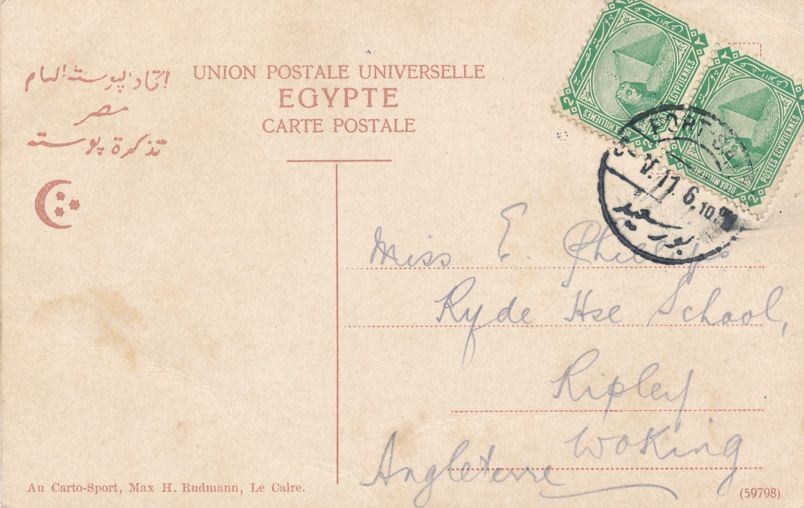 اتحاد البوسته العام
مصر
تذكرة پوسته
UNION POSTALE UNIVERSELLE
EGYPTE
CARTE POSTALE
POSTES EGYPTIENNES
DEUX MILLIEMES
2
PORT SAID
5-V.11.6.10
بور سعيد
Miss E. Phillips
Ryde Hse School,
Ripley
Woking
Angleterre
Au Carto-Sport, Max H. Rudmann, Le Caire.
(59798)